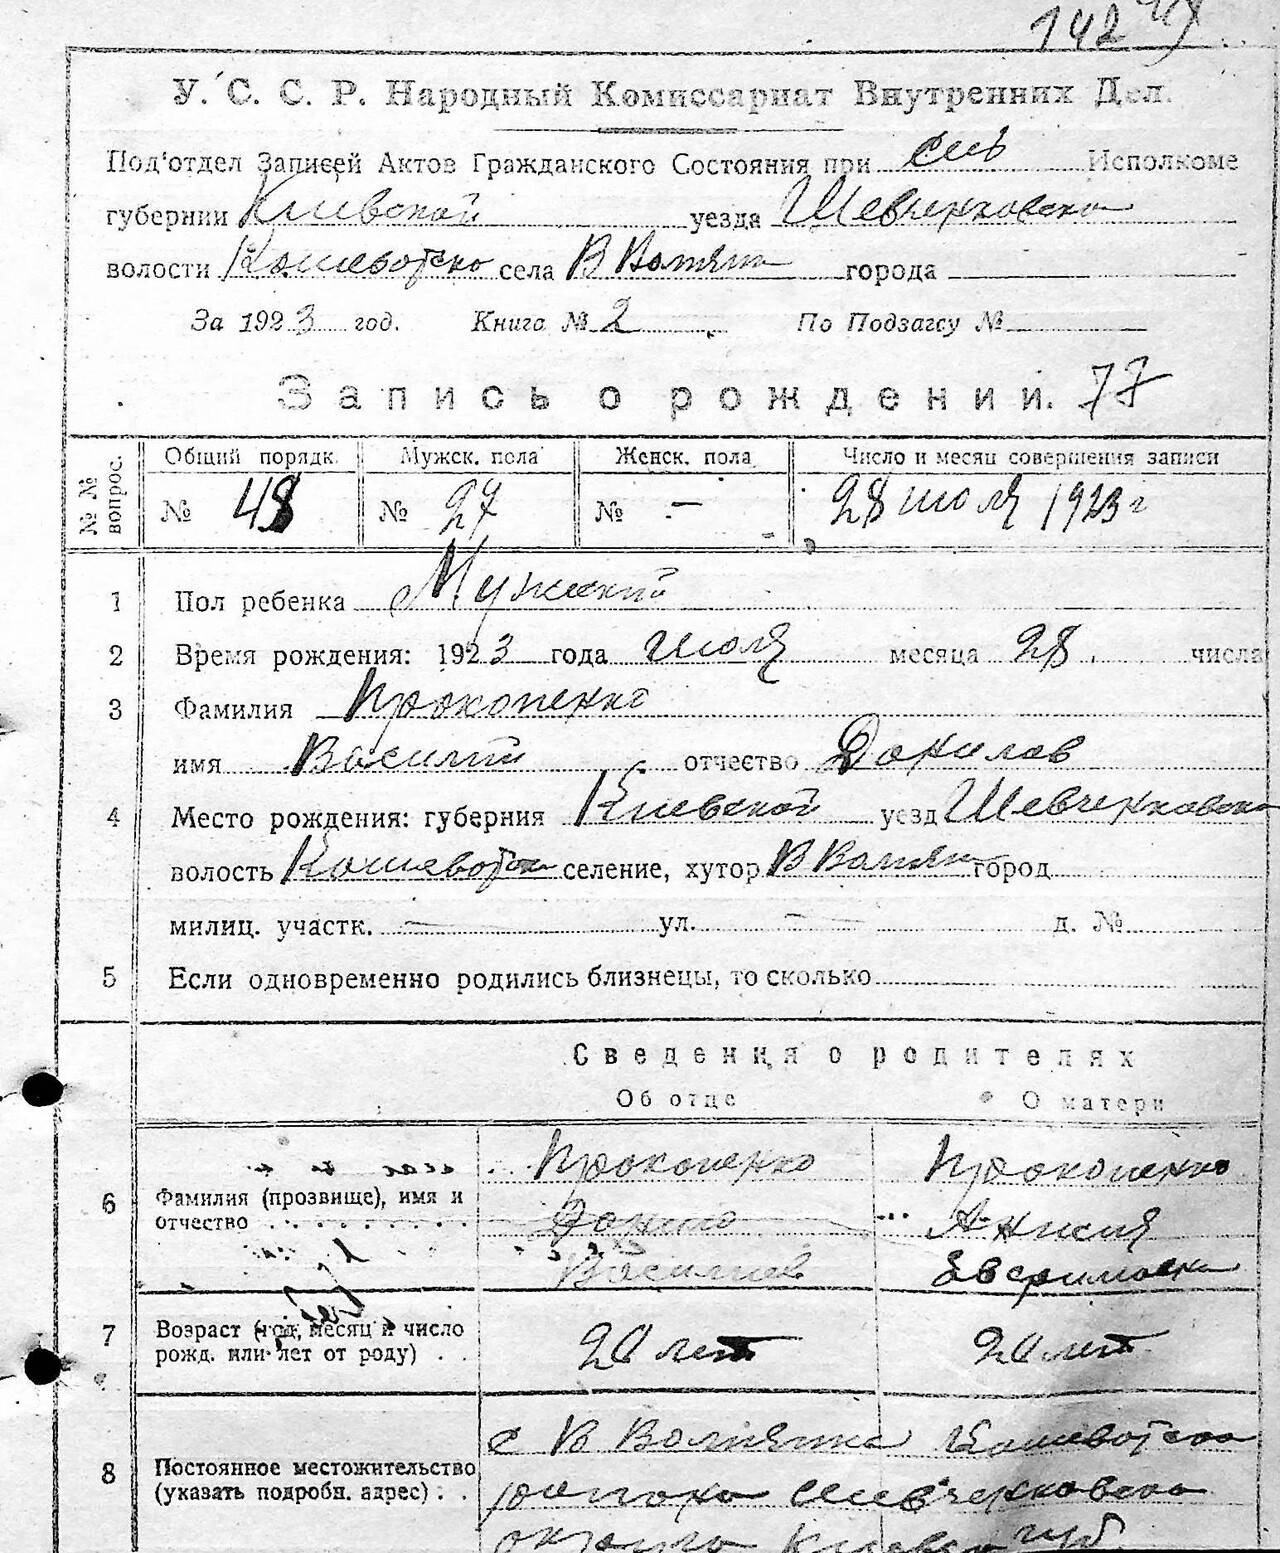 142
У. С. С. Р. Народный Комиссариат Внутренних Дел.
Под'отдел Записей Актов Гражданского Состояния при Исполкоме
губернии Киевской уезда Шевченковско
волости Кошеватско села В Вотял города
За 1923 год. Книга № 2 По Подзагсу №
Запись о рождении. 77
№ № вопрос. Общий порядк. Мужск. пола Женск. пола Число и месяц совершения записи
№ 48 № 27 № — 28 июля 1923 г
1 Пол ребенка Мужский
2 Время рождения: 1923 года июля месяца 28 числа
3 Фамилия Прокопенко
имя Василий отчество Данилов
4 Место рождения: губерния Киевской уезд Шевченковско
волость Кошеватск селение, хутор В город
милиц. участк. — ул. — д. №
5 Если одновременно родились близнецы, то сколько
Сведения о родителях
Об отце О матери
6 Фамилия (прозвище), имя и отчество
Прокопенко Прокопенко
Данило Анисия
Василиев
7 Возраст (год, месяц и число рожд. или лет от роду) 20 лет 20 лет
8 Постоянное местожительство (указать подробн. адрес)
с В Кошеватско
района Шевченковско
округа Киевск губ.